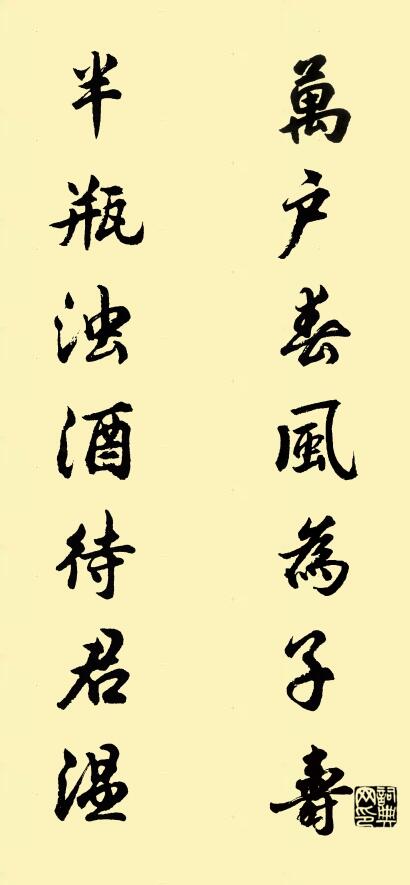 萬户春風為子壽
半瓶浊酒待君温
詞典网印